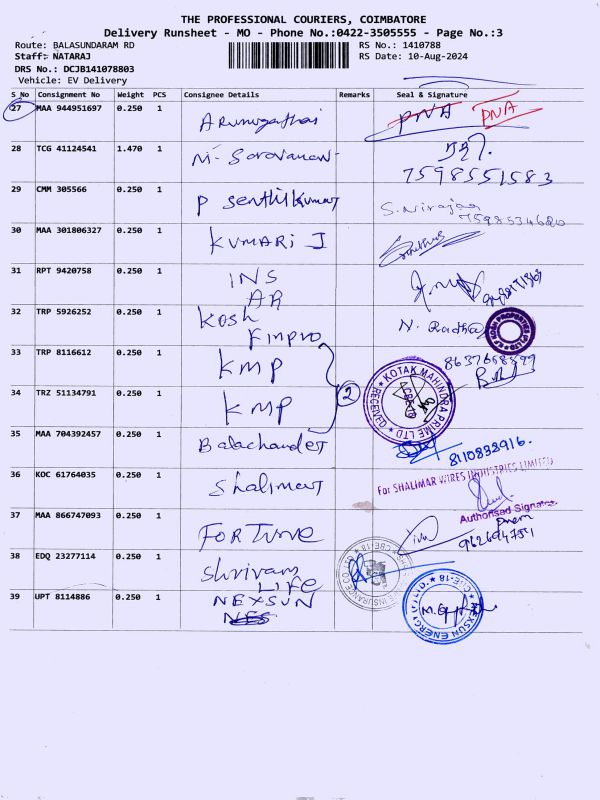 THE PROFESSIONAL COURIERS, COIMBATORE
Delivery Runsheet - MO - Phone No.:0422-3505555 - Page No.:3
Route: BALASUNDARAM RD RS No.: 1410788
Staff: NATARAJ RS Date: 10-Aug-2024
DRS No.: DCJB141078803
Vehicle: EV Delivery
S_No Consignment No Weight PCS Consignee Details Remarks Seal & Signature
27 MAA 944951697 0.250 1 Arumugathai PNA PNA
28 TCG 41124541 1.470 1 M. Saravanan
7598551583
29 CMM 305566 0.250 1 P Senthilkumar S. Nirajan
7598534620
30 MAA 301806327 0.250 1 KUMARI J
31 RPT 9420758 0.250 1 INS
AR
32 TRP 5926252 0.250 1 Kosh N. Radha
Finpro
33 TRP 8116612 0.250 1 KMP
34 TRZ 51134791 0.250 1 KMP 2 KOTAK MAHINDRA PRIME LTD RECEIVED CBE-18
35 MAA 704392457 0.250 1 Balachander 8110832916.
36 KOC 61764035 0.250 1 Shalimar For SHALIMAR WIRES INDUSTRIES LIMITED
Authorised Signatory
37 MAA 866747093 0.250 1 FORTUNE Prem
38 EDQ 23277114 0.250 1 Shriram
LIFE
39 UPT 8114886 0.250 1 NEXSUN NEXSUN ENERGY CBE-18
NES